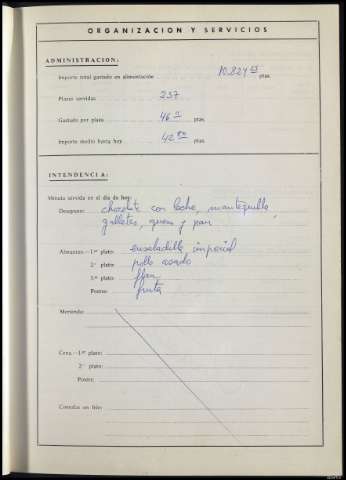 ORGANIZACION Y SERVICIOS
ADMINISTRACION:
Importe total gastado en alimentación 10.824 ptas.
Platos servidos 237
Gastado por plato 46 ptas.
Importe medio hasta hoy 42 ptas.
INTENDENCIA:
Minuta servida en el día de hoy:
Desayuno: chocolate con leche, mantequilla,
galletas, queso y pan
Almuerzo.—1.er plato: ensaladilla imperial
2.º plato: pollo asado
3.er plato: flan
Postre: fruta
Merienda:
Cena.—1.er plato:
2.º plato:
Postre:
Comidas en frío: